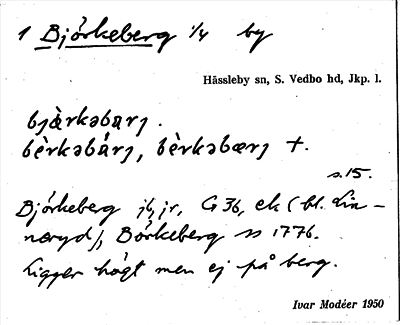 1 Björkeberg 1/4 by
Hässleby sn, S. Vedbo hd, Jkp. l.
bjàrkəbarj.
bèrkəbárj, bèrkəbærj †.
s. 15.
Björkeberg jb, jr, G 36, ek (bl. Lin-
neryd), Börkeberg 1776.
Ligger högt men ej på berg.
Ivar Modéer 1950